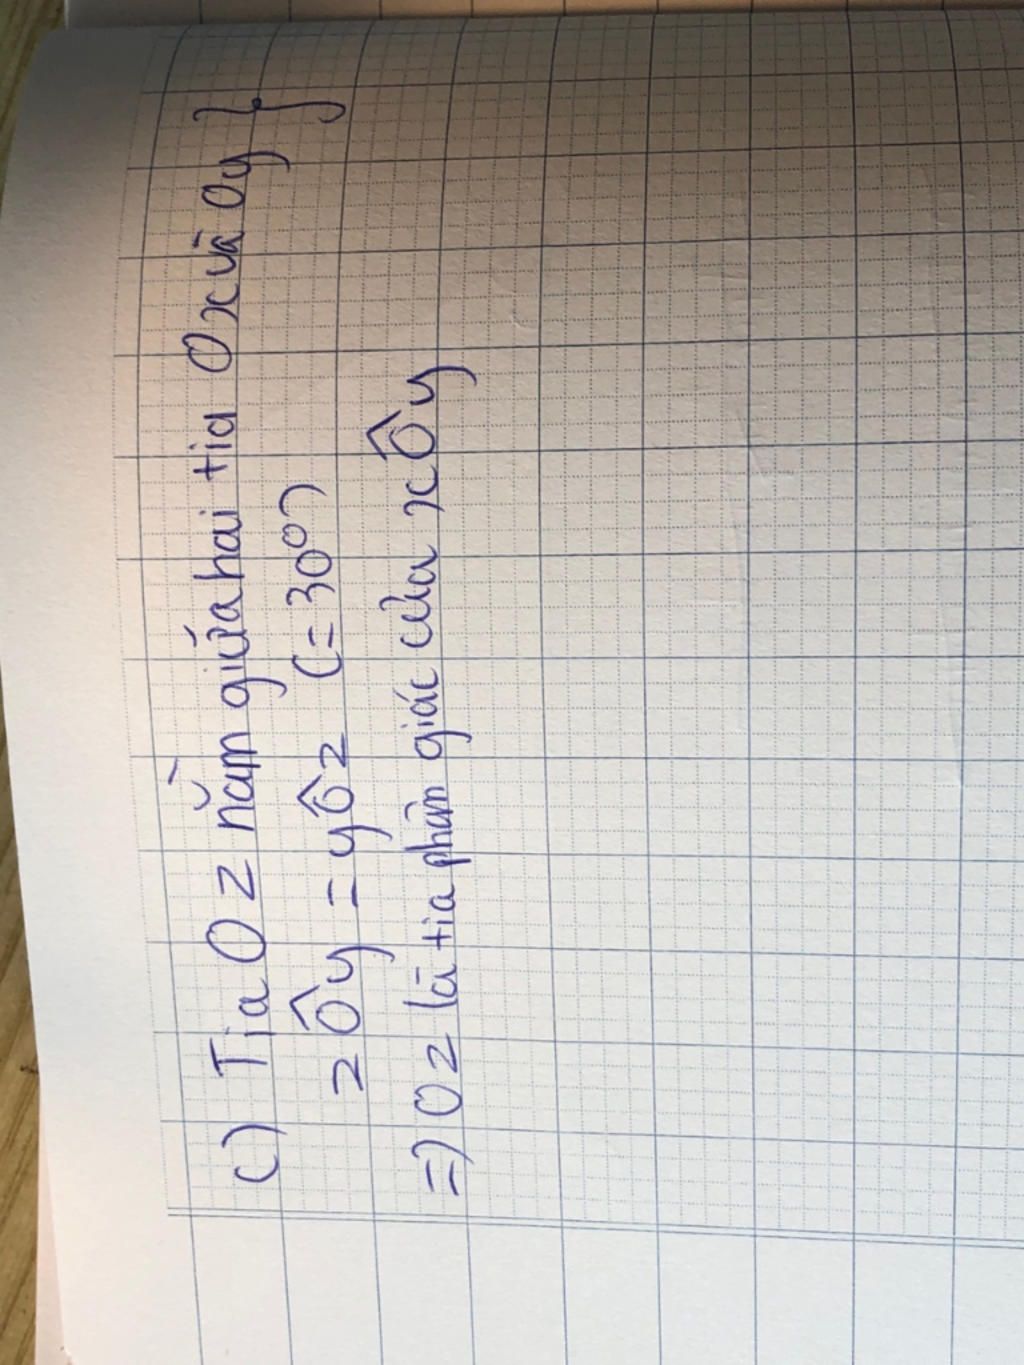 c) Tia Oz nằm giữa hai tia Ox và Oy }
zÔy = yÔz (= 30⁰)
=) Oz là tia phân giác của xÔy